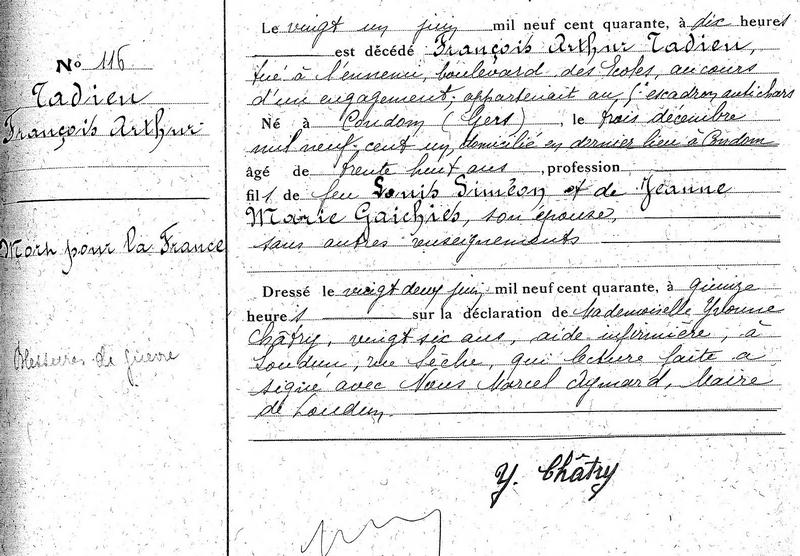 No 116
Tadieu
François Arthur
Mort pour la France
Blessures de guerre
Le vingt un juin mil neuf cent quarante, à dix heures
est décédé François Arthur Tadieu,
tué à l'ennemi, boulevard des Ecoles, au cours
d'un engagement; appartenait au escadron antichars
Né à Condom (Gers), le trois décembre
mil neuf-cent un, domicilié en dernier lieu à Condom
âgé de trente huit ans, profession
fils de feu Louis Siméon et de Jeanne
Marie Gaichies, son épouse,
sans autres renseignements
Dressé le vingt deux juin mil neuf cent quarante, à quinze
heures sur la déclaration de Mademoiselle Yvonne
Châtry, vingt six ans, aide infirmière, à
Loudun, rue Sèche, qui lecture faite a
signé avec Nous Marcel Aymard, Maire
de Loudun.
Y. Châtry